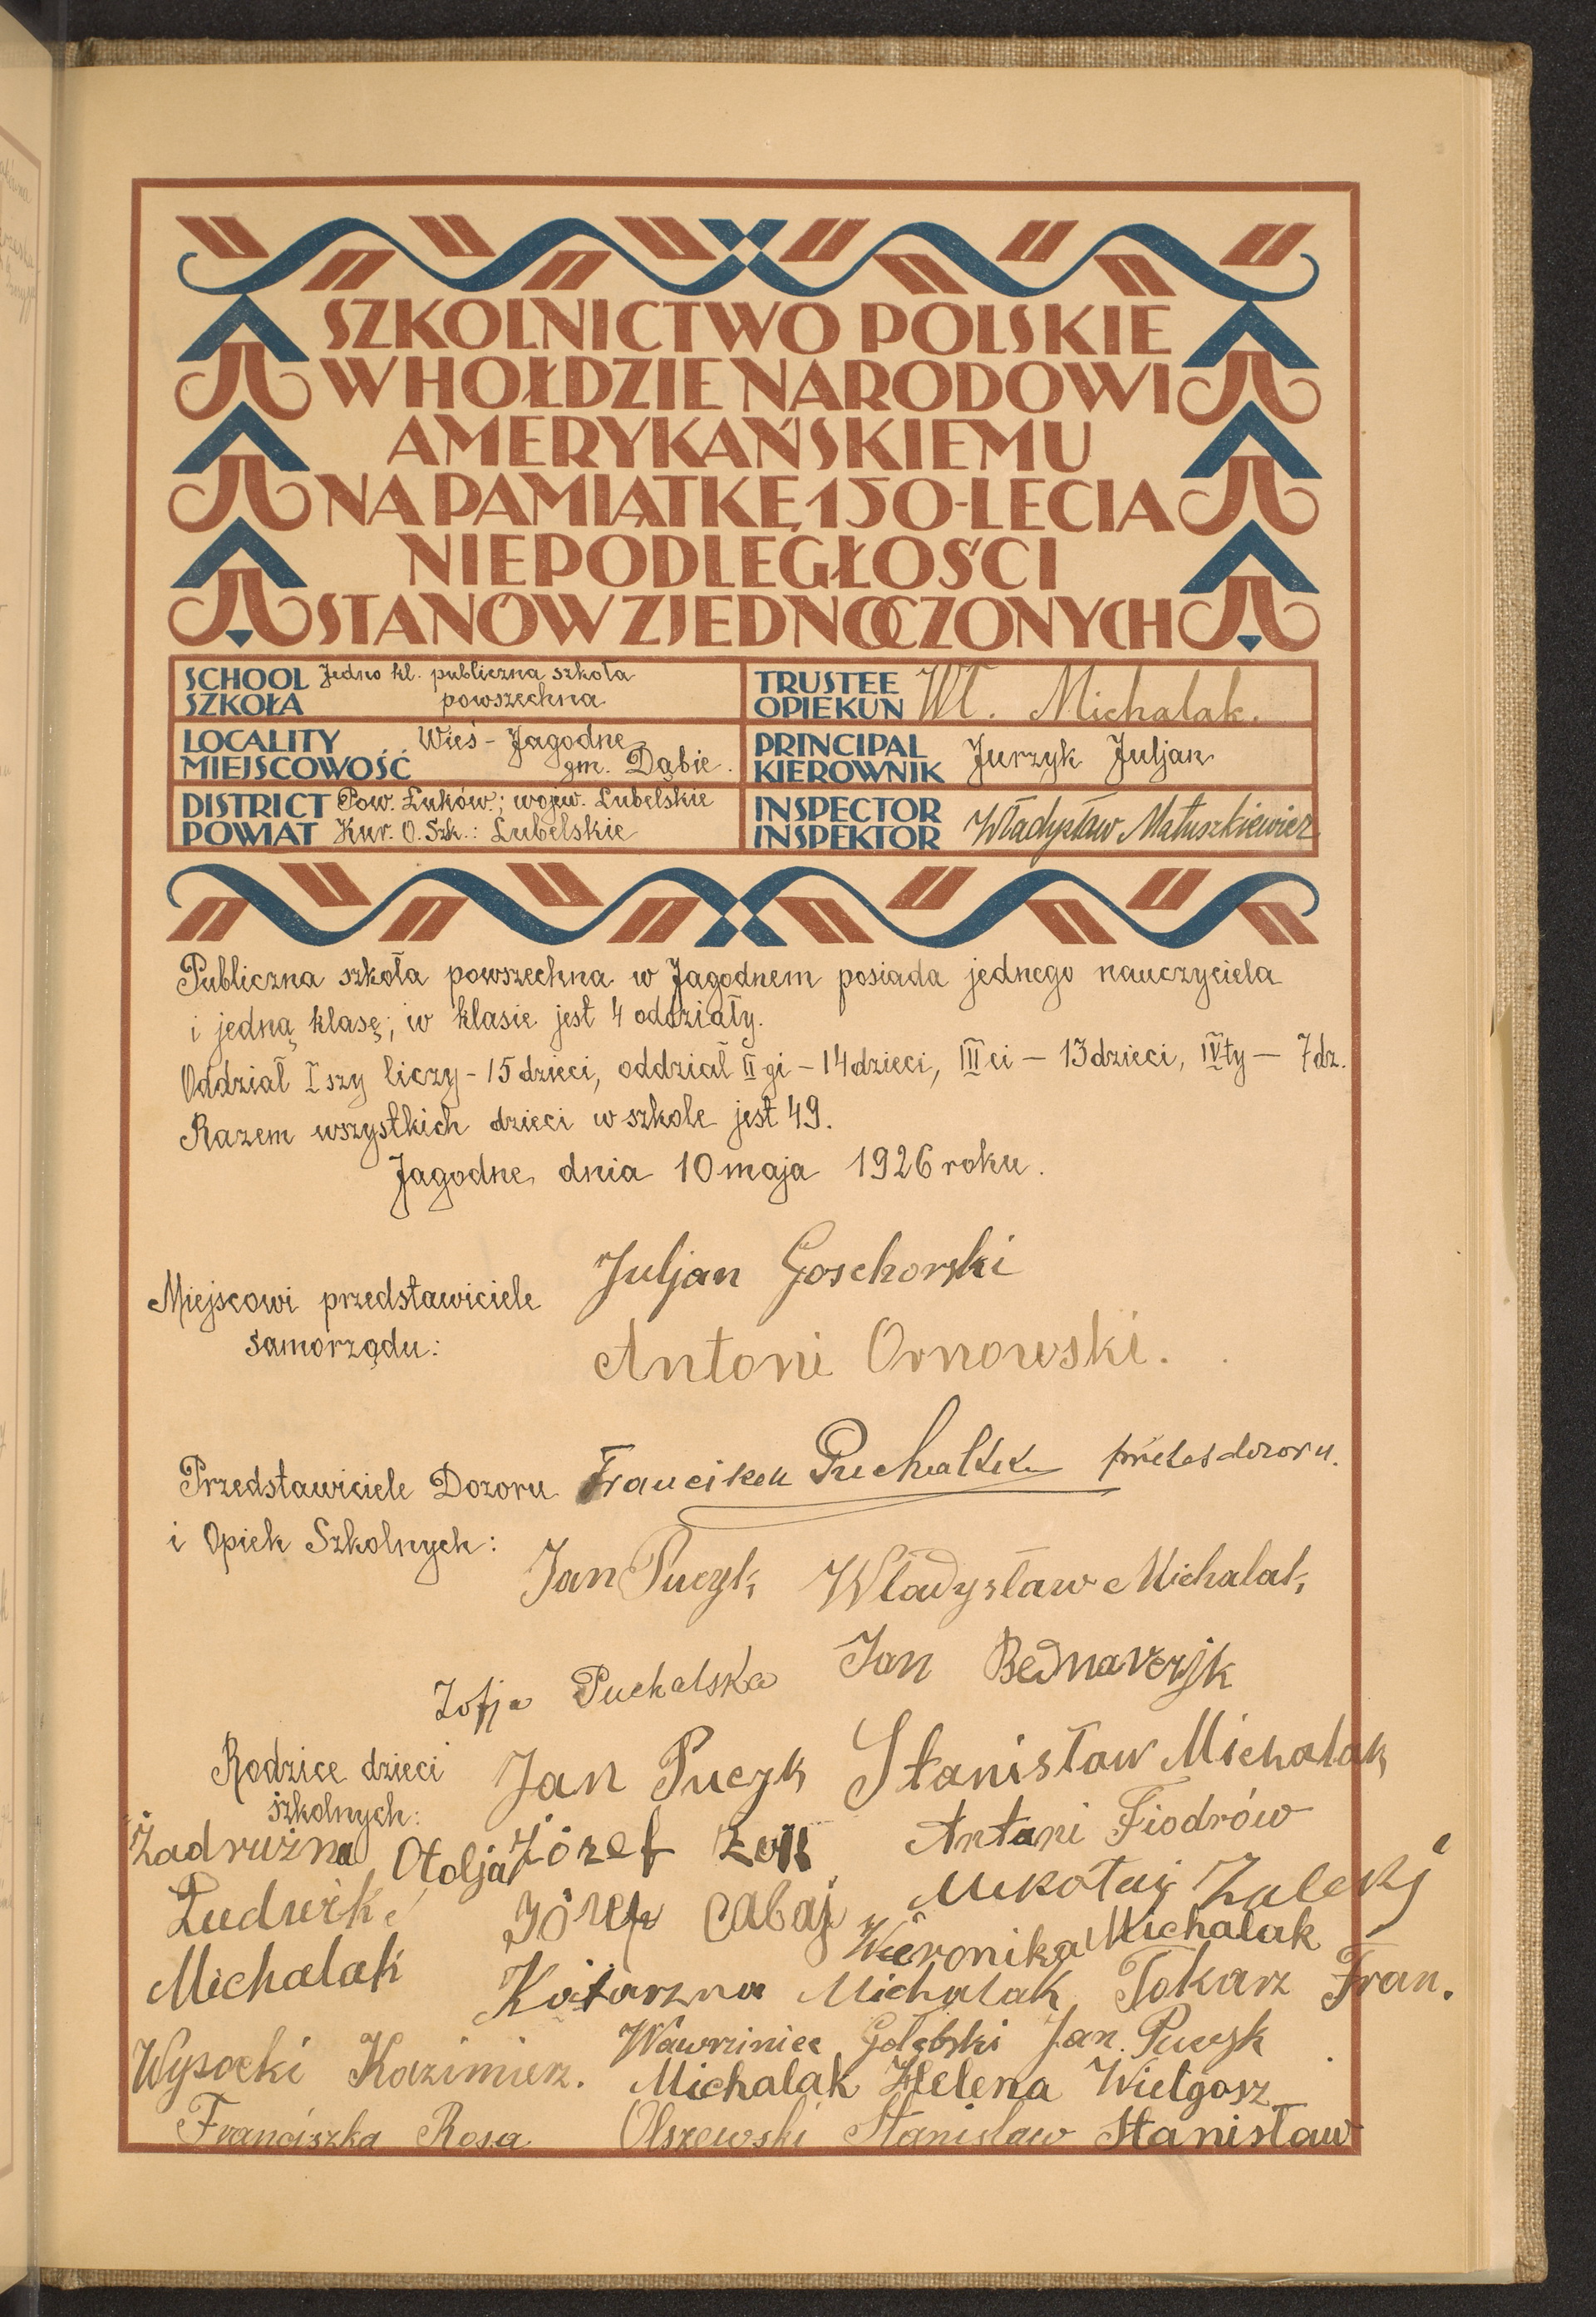 SZKOLNICTWO POLSKIE
W HOŁDZIE NARODOWI
AMERYKAŃSKIEMU
NA PAMIĄTKĘ 150-LECIA
NIEPODLEGŁOŚCI
STANÓW ZJEDNOCZONYCH
SCHOOL SZKOŁA Jedno kl. publiczna szkoła
powszechna
TRUSTEE OPIEKUN Wł. Michalak.
LOCALITY MIEJSCOWOŚĆ Wieś - Jagodne
gm. Dąbie.
PRINCIPAL KIEROWNIK Jurzyk Juljan
DISTRICT POWIAT Pow. Łuków; wojew. Lubelskie
Kur. O. Szk.: Lubelskie
INSPECTOR INSPEKTOR Władysław Matuszkiewicz
Publiczna szkoła powszechna w Jagodnem posiada jednego nauczyciela
i jedną klasę; w klasie jest 4 oddziały.
Oddział I szy liczy - 15 dzieci, oddział II gi - 14 dzieci, III ci - 13 dzieci, IV ty - 7 dz.
Razem wszystkich dzieci w szkole jest 49.
Jagodne, dnia 10 maja 1926 roku.
Miejscowi przedstawiciele
samorządu:
Juljan Goschorski
Antoni Ornowski.
Przedstawiciele Dozoru
i Opiek Szkolnych:
Puchalski dozoru.
Jan Pucyk Władysław Michalak
Zofja Puchalska Jan Bednarczyk
Rodzice dzieci
szkolnych:
Jan Pucyk Stanisław Michalak
Żadrużna Otolja Józef Antoni Fiodrów
Ludwik Józef Cabaj Mikołaj Zaleski
Michalak Weronika Michalak
Katarzna Michalak Tokarz Fran.
Wysocki Kazimierz. Wawrziniec Gołębski Jan Pucyk
Michalak Helena Wielgosz
Franciszka Rosa Olszewski Stanisław Stanisław